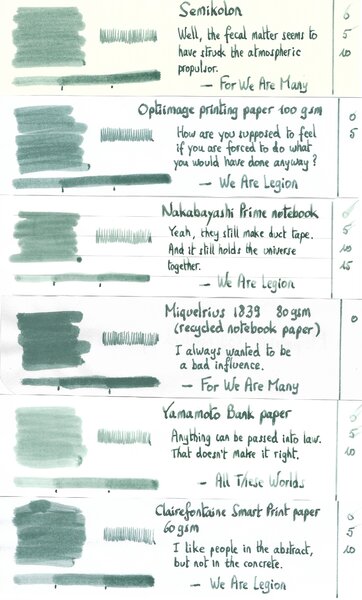 Semikolon
Well, the fecal matter seems to
have struck the atmospheric
propulsor.
— For We Are Many
0
5
10
Optiimage printing paper 100 gsm
How are you supposed to feel
if you are forced to do what
you would have done anyway?
— We Are Legion
0
5
Nakabayashi Prime notebook
Yeah, they still make duct tape.
And it still holds the universe
together.
— We Are Legion
0
5
10
15
Miquelrius 1839 80gsm
(recycled notebook paper)
I always wanted to be
a bad influence.
— For We Are Many
0
Yamamoto Bank paper
Anything can be passed into law.
That doesn't make it right.
— All These Worlds
0
5
10
Clairefontaine Smart Print paper
60gsm
I like people in the abstract,
but not in the concrete.
— We Are Legion
0
5
10